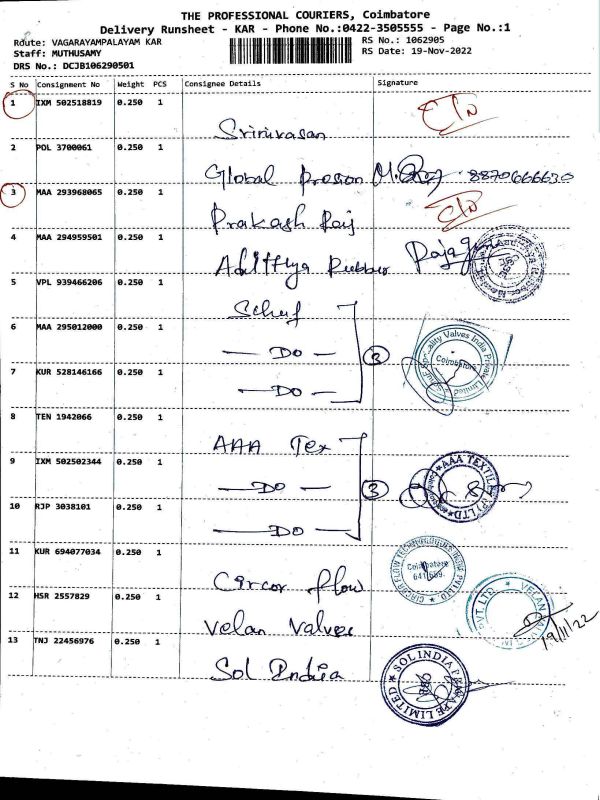 THE PROFESSIONAL COURIERS, Coimbatore
Delivery Runsheet - KAR - Phone No.:0422-3505555 - Page No.:1
Route: VAGARAYAMPALAYAM KAR
RS No.: 1062905
Staff: MUTHUSAMY
RS Date: 19-Nov-2022
DRS No.: DCJB106290501
S No Consignment No Weight PCS Consignee Details Signature
1 IXM 502518819 0.250 1
Srinivasan
2 POL 3700061 0.250 1
Global 8870666630
3 MAA 293968065 0.250 1
Prakash Raj
4 MAA 294959501 0.250 1
Adithya Rubber
5 VPL 939466206 0.250 1
Schuf
6 MAA 295012000 0.250 1
— DO —
3
7 KUR 528146166 0.250 1
— DO —
8 TEN 1942066 0.250 1
AAA Tex
9 IXM 502502344 0.250 1
— DO —
3
10 RJP 3038101 0.250 1
— DO —
11 KUR 694077034 0.250 1
Circor flow
12 HSR 2557829 0.250 1
Velan Valves
19/11/22
13 TNJ 22456976 0.250 1
Sol India
Coimbatore
AAA TEXTILES (P) LTD
Coimbatore
VELAN
PVT. LTD
SOL INDIA PRIVATE LIMITED